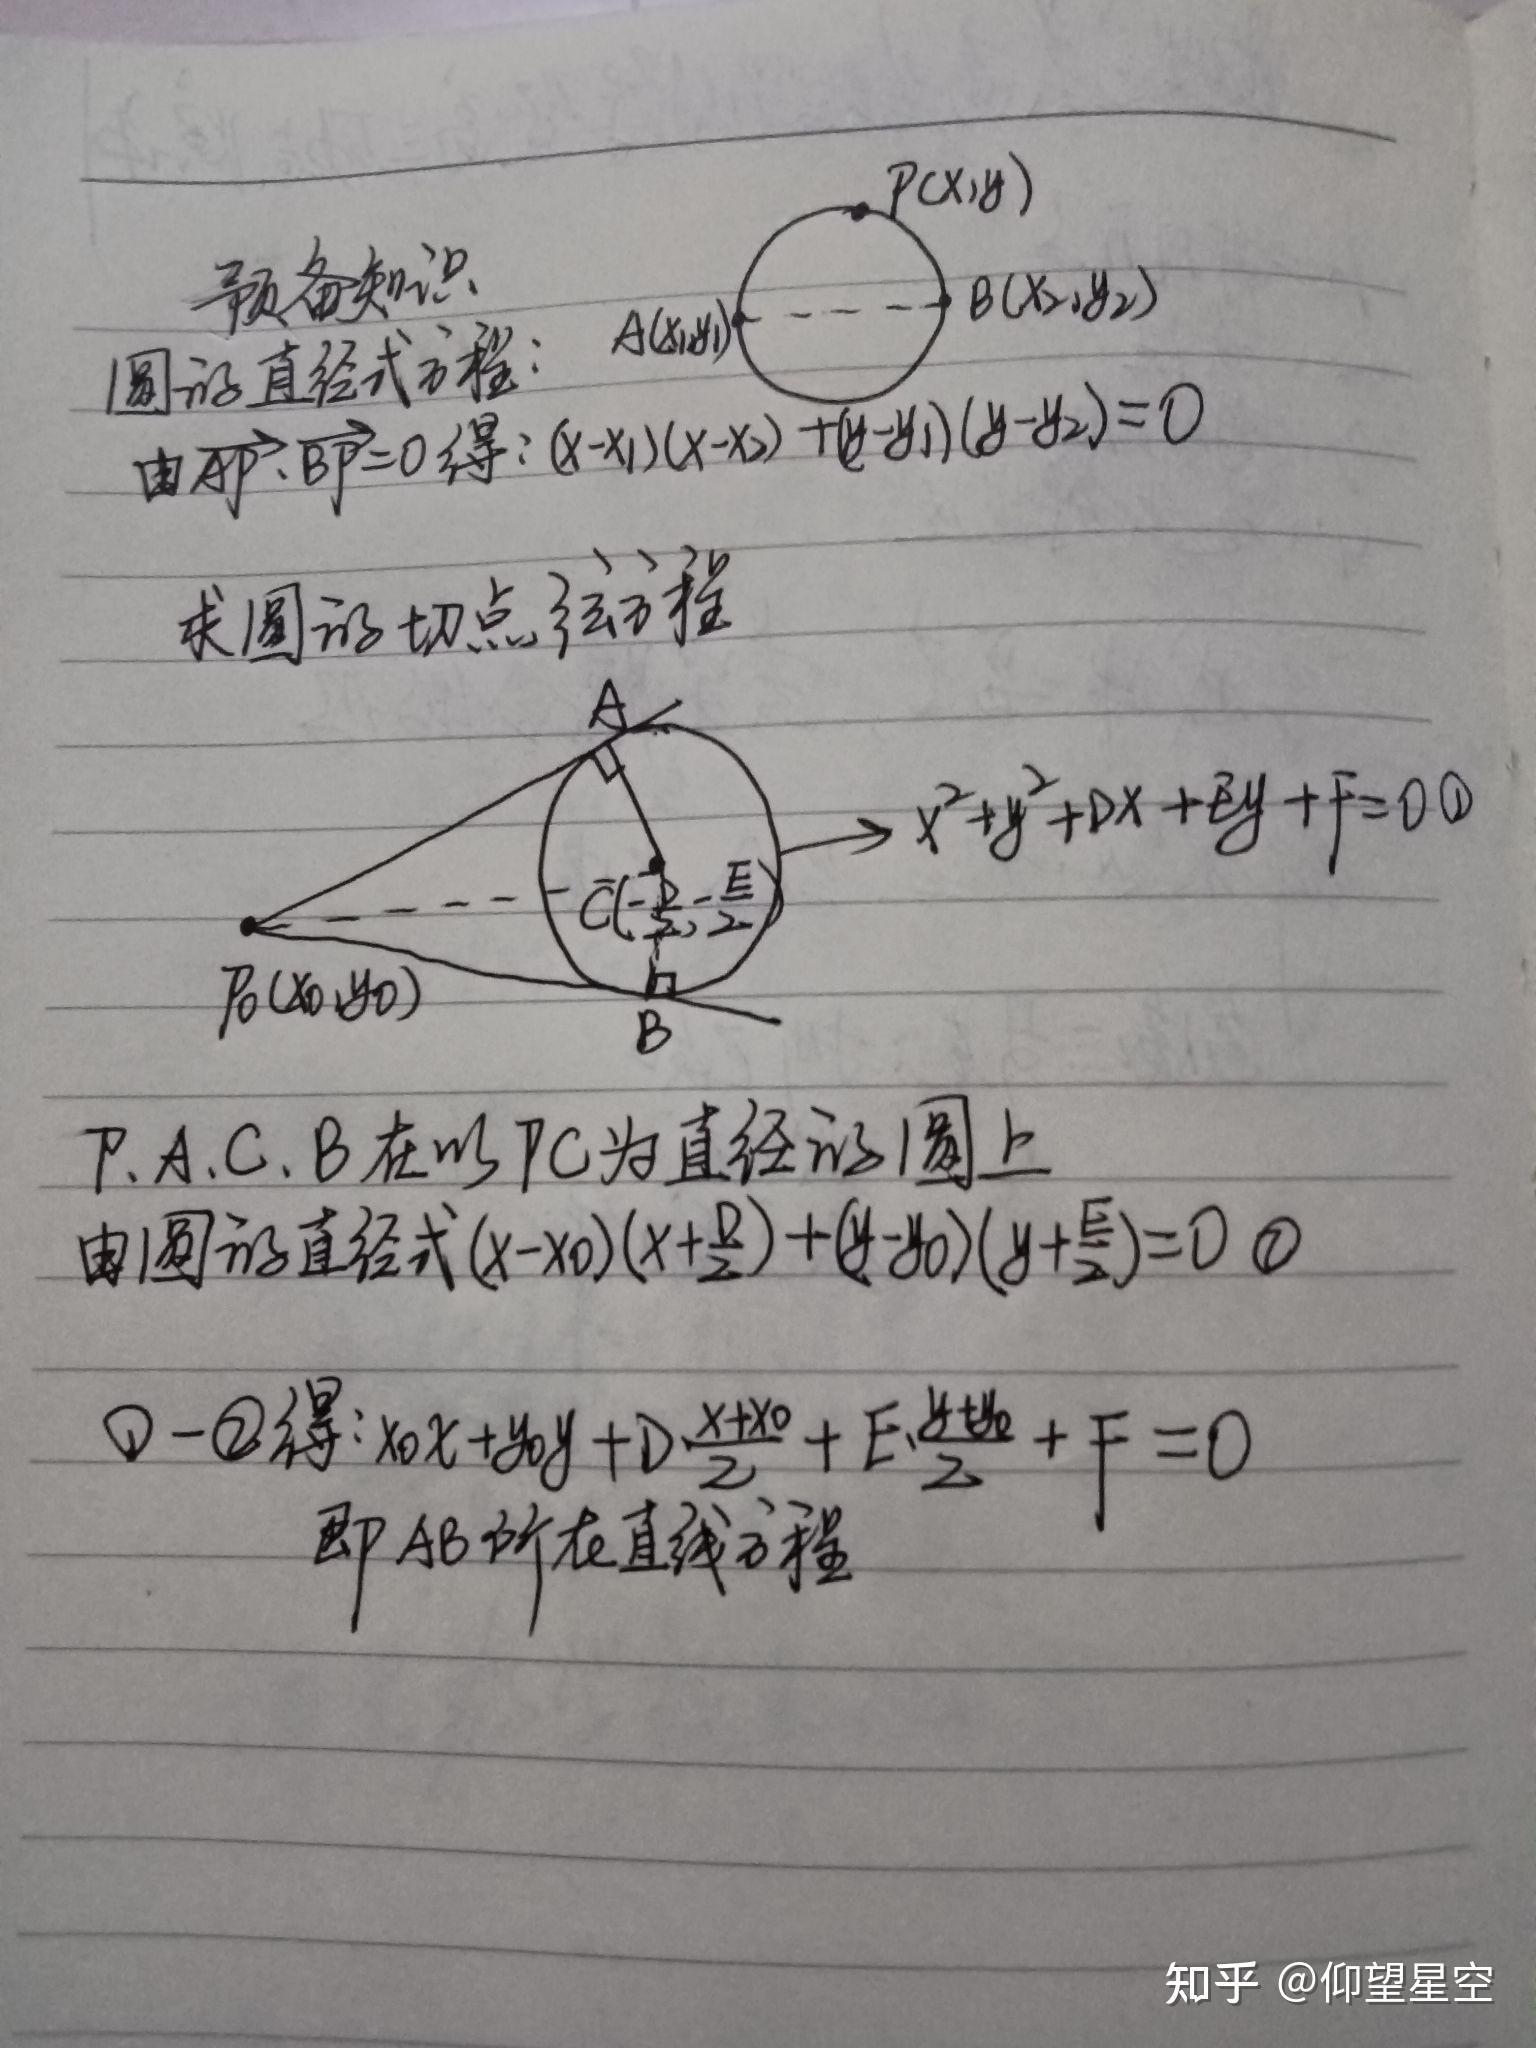 P(x,y)
预备知识
A(x₁,y₁)
B(x₂,y₂)
圆的直径式方程:
由AP→·BP→=0得:(x-x₁)(x-x₂)+(y-y₁)(y-y₂)=0
求圆的切点弦方程
A
x²+y²+Dx+Ey+F=0①
C(-D/2,-E/2)
P₀(x₀,y₀)
B
P.A.C.B在以PC为直径的圆上
由圆的直径式(x-x₀)(x+D/2)+(y-y₀)(y+E/2)=0②
①-②得:x₀x+y₀y+D·(x+x₀)/2+E·(y+y₀)/2+F=0
即AB所在直线方程
知乎 @仰望星空